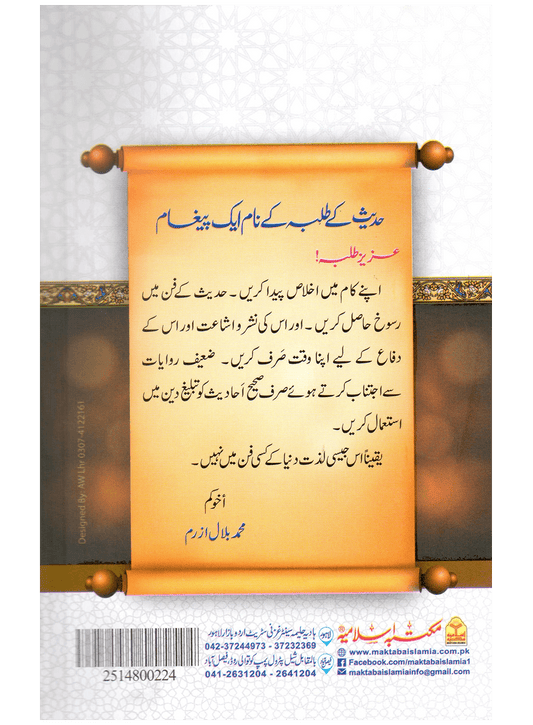 حدیث کے طلبہ کے نام ایک پیغام
عزیز طلبہ!
اپنے کام میں اخلاص پیدا کریں۔ حدیث کے فن میں
رسوخ حاصل کریں۔ اور اس کی نشر و اشاعت اور اس کے
دفاع کے لیے اپنا وقت صَرف کریں۔ ضعیف روایات
سے اجتناب کرتے ہوئے صرف صحیح اَحادیث کو تبلیغ دین میں
استعمال کریں۔
یقیناً اس جیسی لذت دنیا کے کسی فن میں نہیں۔
أخوکم
محمد بلال ازرم
Designed By: AW Lhr 0307-4122161
مکتبہ اسلامیہ®
www.maktabaislamia.com.pk
Facebook.com/maktabaislamia1
maktabaislamiainfo@gmail.com
لاہور ہادیہ حلیمہ سینٹر غزنی سٹریٹ اردو بازار لاہور
042-37244973 - 37232369
فیصل آباد بالمقابل شیل پٹرول پمپ کوتوالی روڈ، فیصل آباد
041-2631204 - 2641204
2514800224